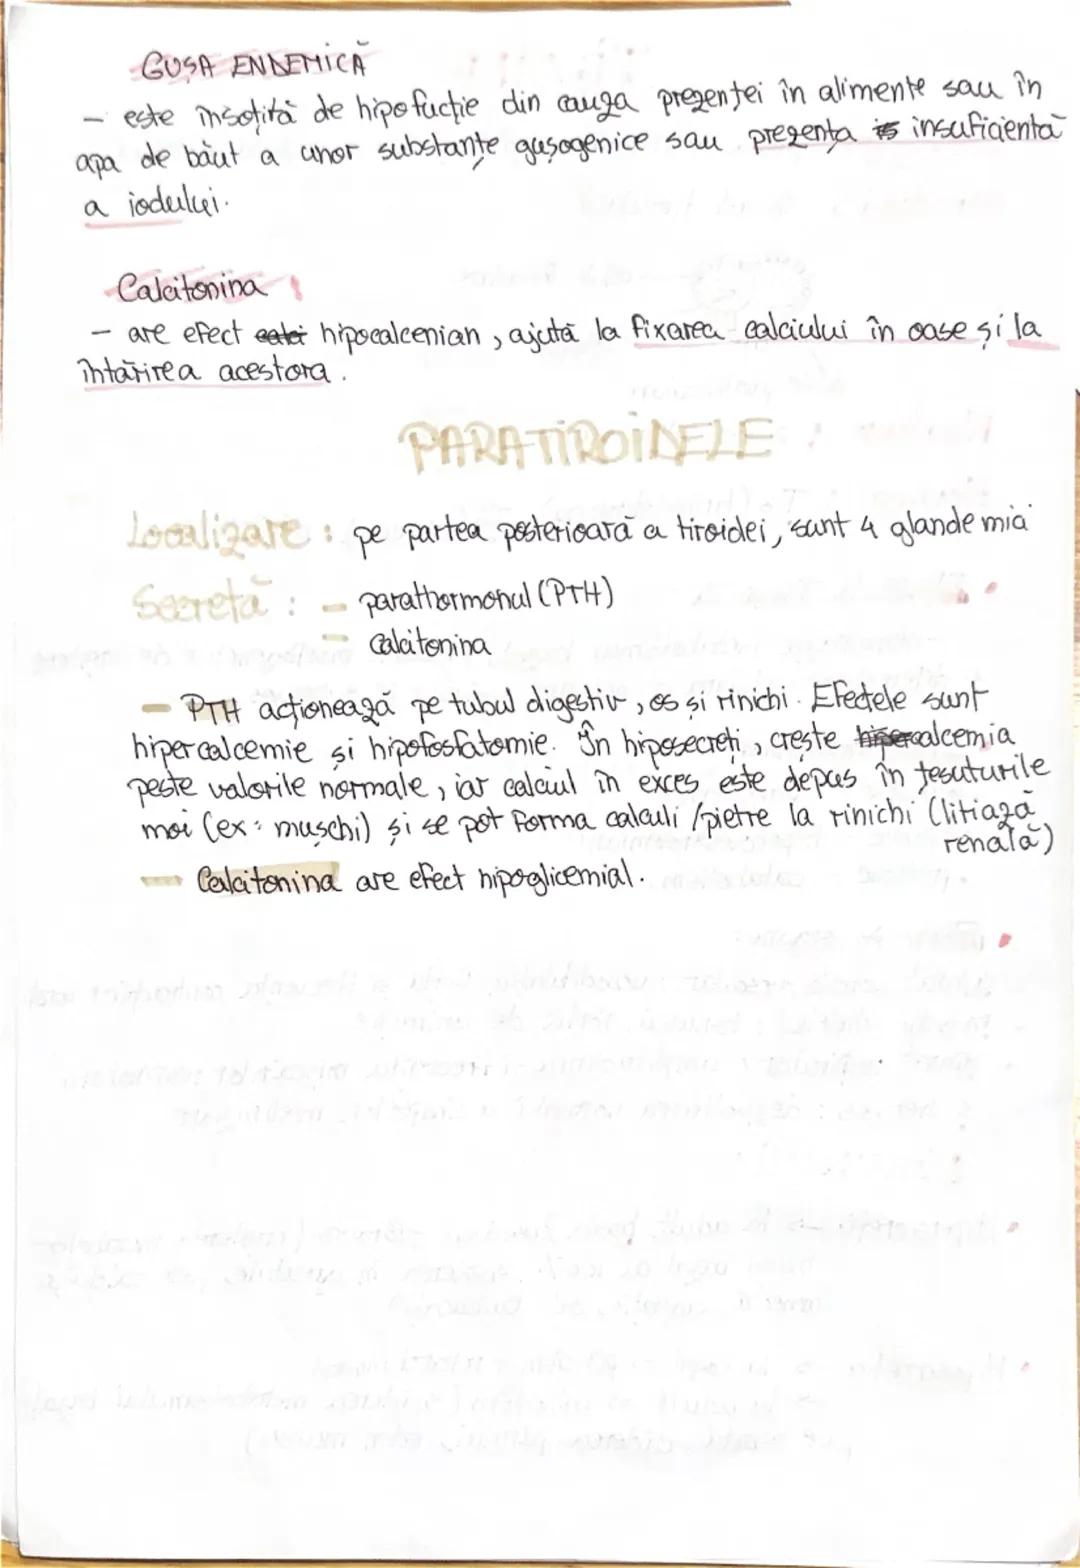 GUȘA ENDEMICĂ
- este însoțită de hipofucție din cauza prezenței în alimente sau în
apa de băut a unor substanțe gușogenice sau prezența insuficientă
a iodului.
Calcitonina !
- are efect hipocalcenian, ajută la fixarea calciului în oase și la
întărirea acestora.
PARATIROIDELE
Localizare : pe partea posterioară a tiroidei, sunt 4 glande mici
Secretă : - parathormonul (PTH)
- calcitonina
- PTH acționează pe tubul digestiv, os și rinichi. Efectele sunt
hipercalcemie și hipofosfatomie. În hipesecreți, crește calcemia
peste valorile normale, iar calciul în exces este depus în țesuturile
moi (ex: mușchi) și se pot forma calculi/pietre la rinichi (litiază
renală)
- Calcitonina are efect hipoglicemial.